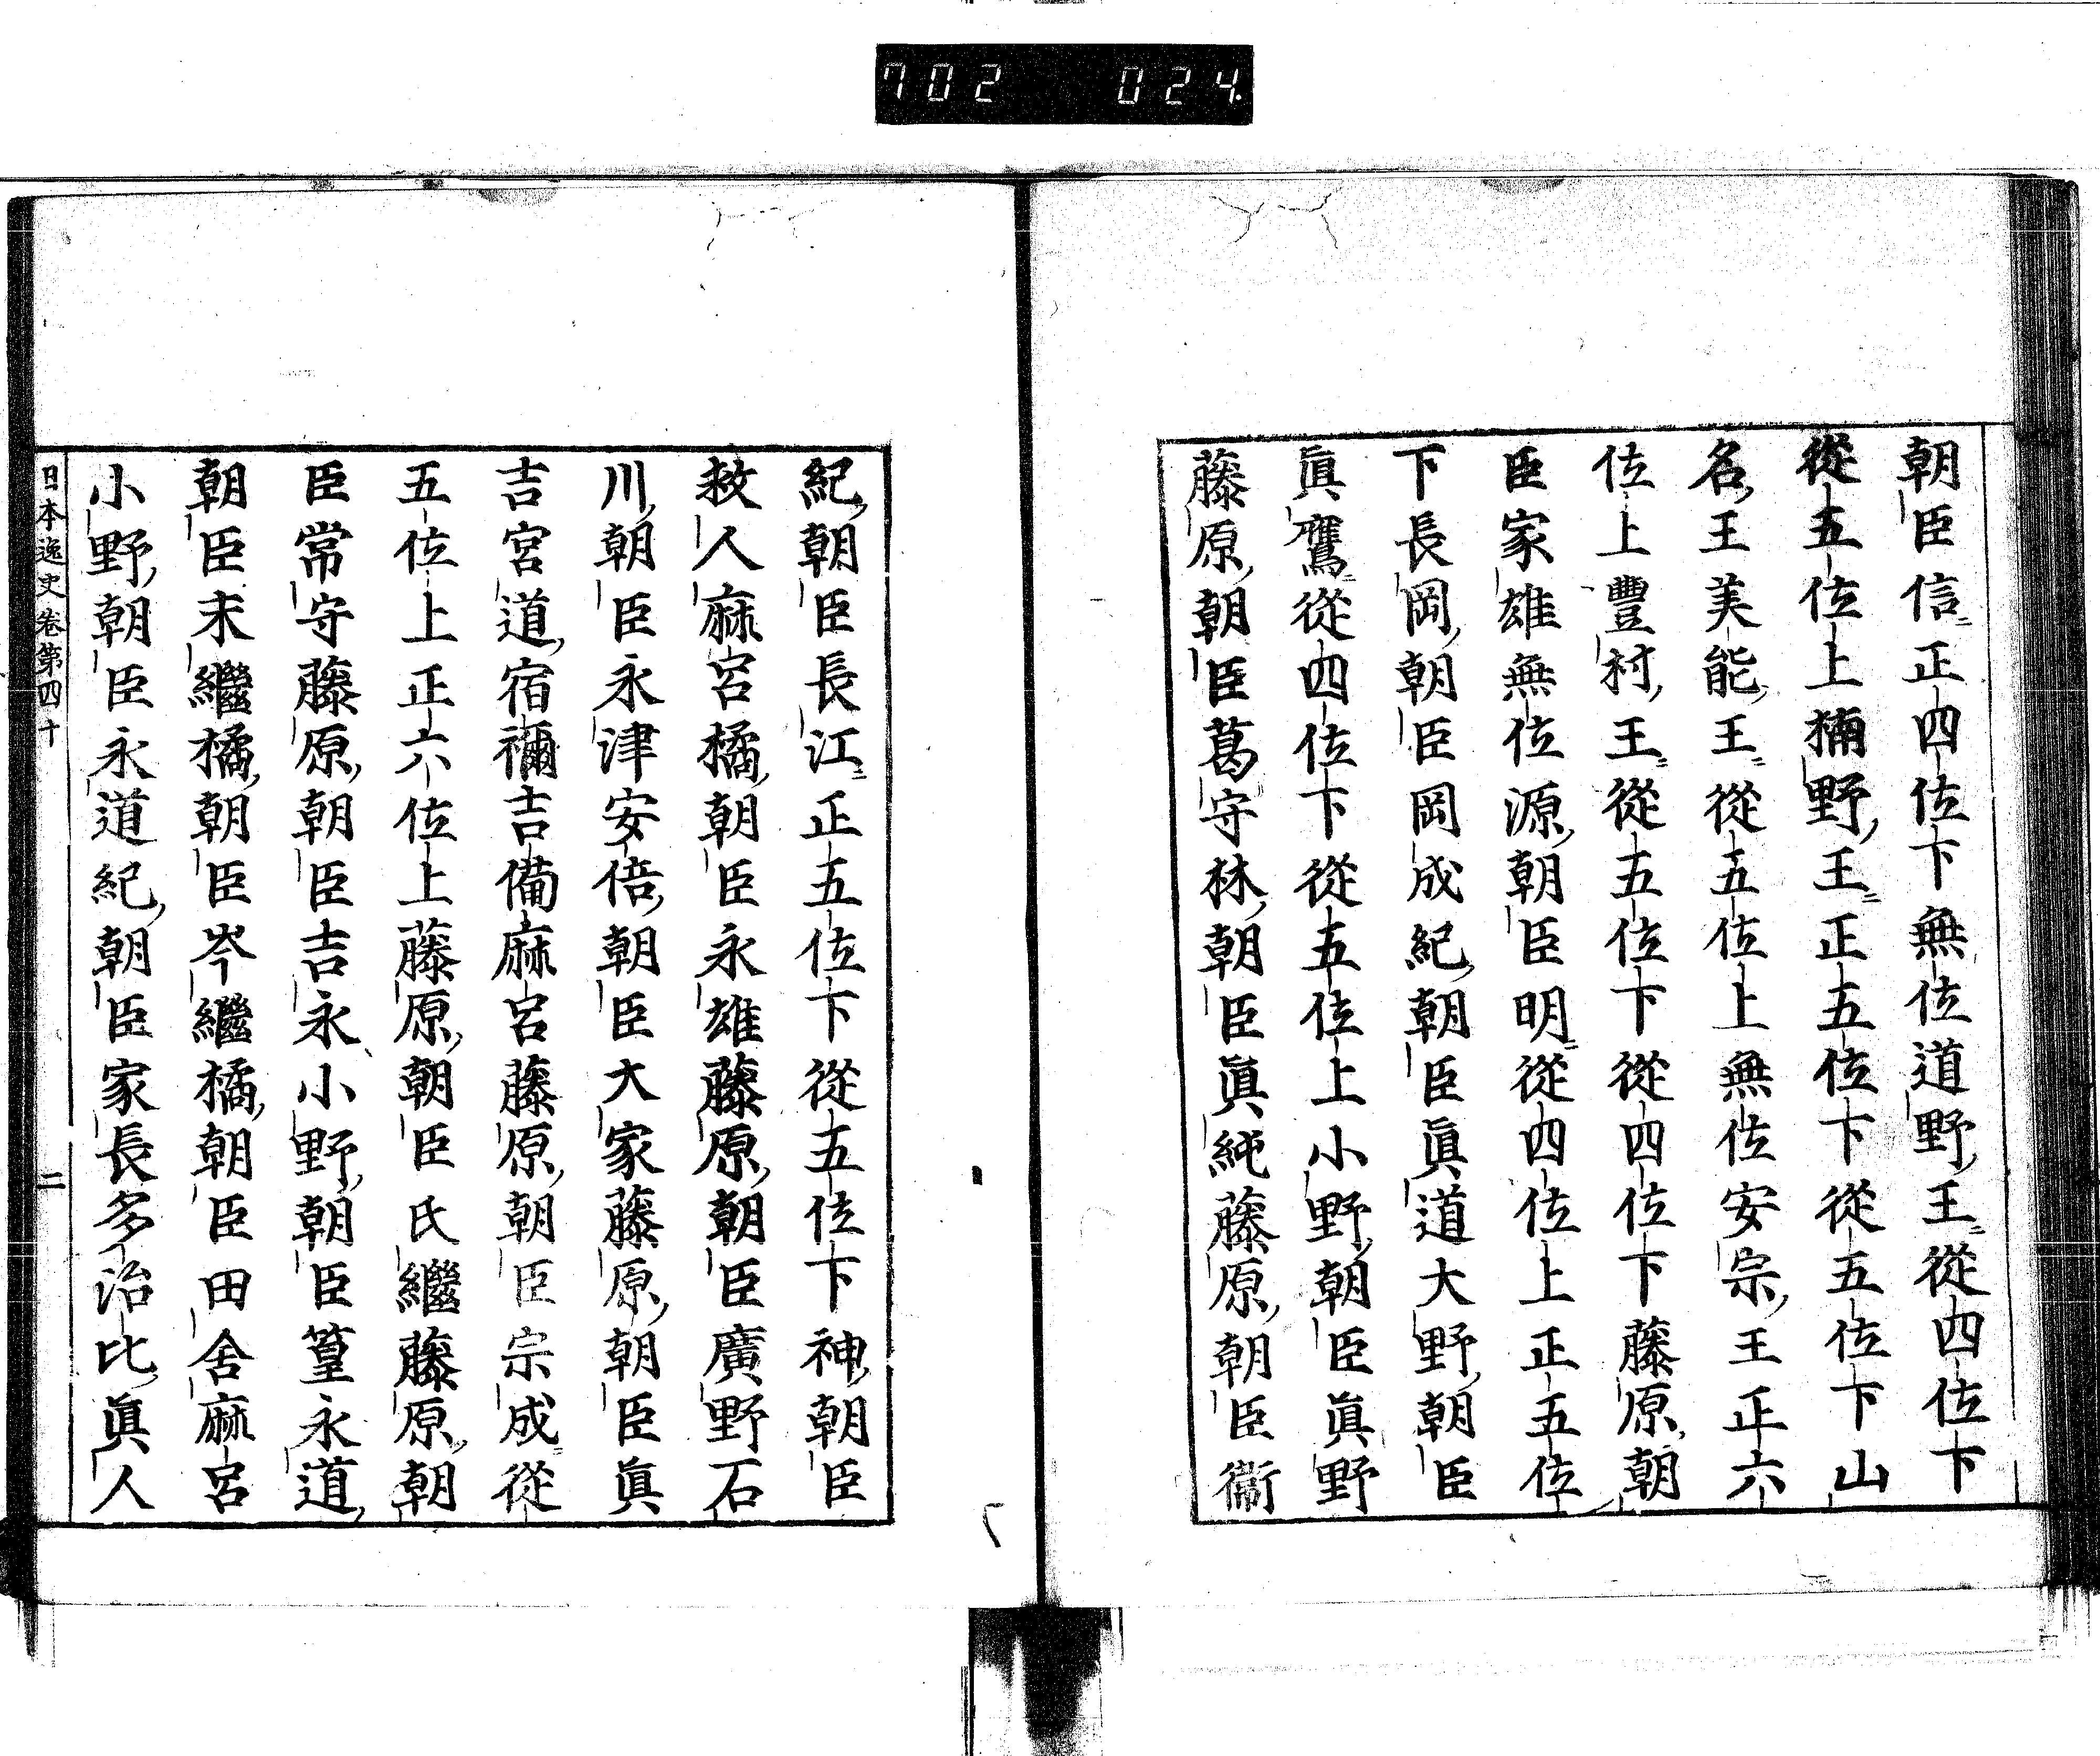 702 024
朝臣信正四位下無位道野王從四位下
從五位上楠野王正五位下從五位下山
名王美能王從五位上無位安宗王正六
位上豐村王從五位下從四位下藤原朝
臣家雄無位源朝臣明從四位上正五位
下長岡朝臣岡成紀朝臣眞道大野朝臣
眞鷹從四位下從五位上小野朝臣眞野
藤原朝臣葛守林朝臣眞純藤原朝臣衞
紀朝臣長江正五位下從五位下神朝臣
救人麻呂橘朝臣永雄藤原朝臣廣野石
川朝臣永津安倍朝臣大家藤原朝臣眞
吉宮道宿禰吉備麻呂藤原朝臣宗成從
五位上正六位上藤原朝臣氏繼藤原朝
臣常守藤原朝臣吉永小野朝臣篁永道
朝臣末繼橘朝臣岑繼橘朝臣田舍麻呂
小野朝臣永道紀朝臣家長多治比眞人
日本逸史卷第四十 二